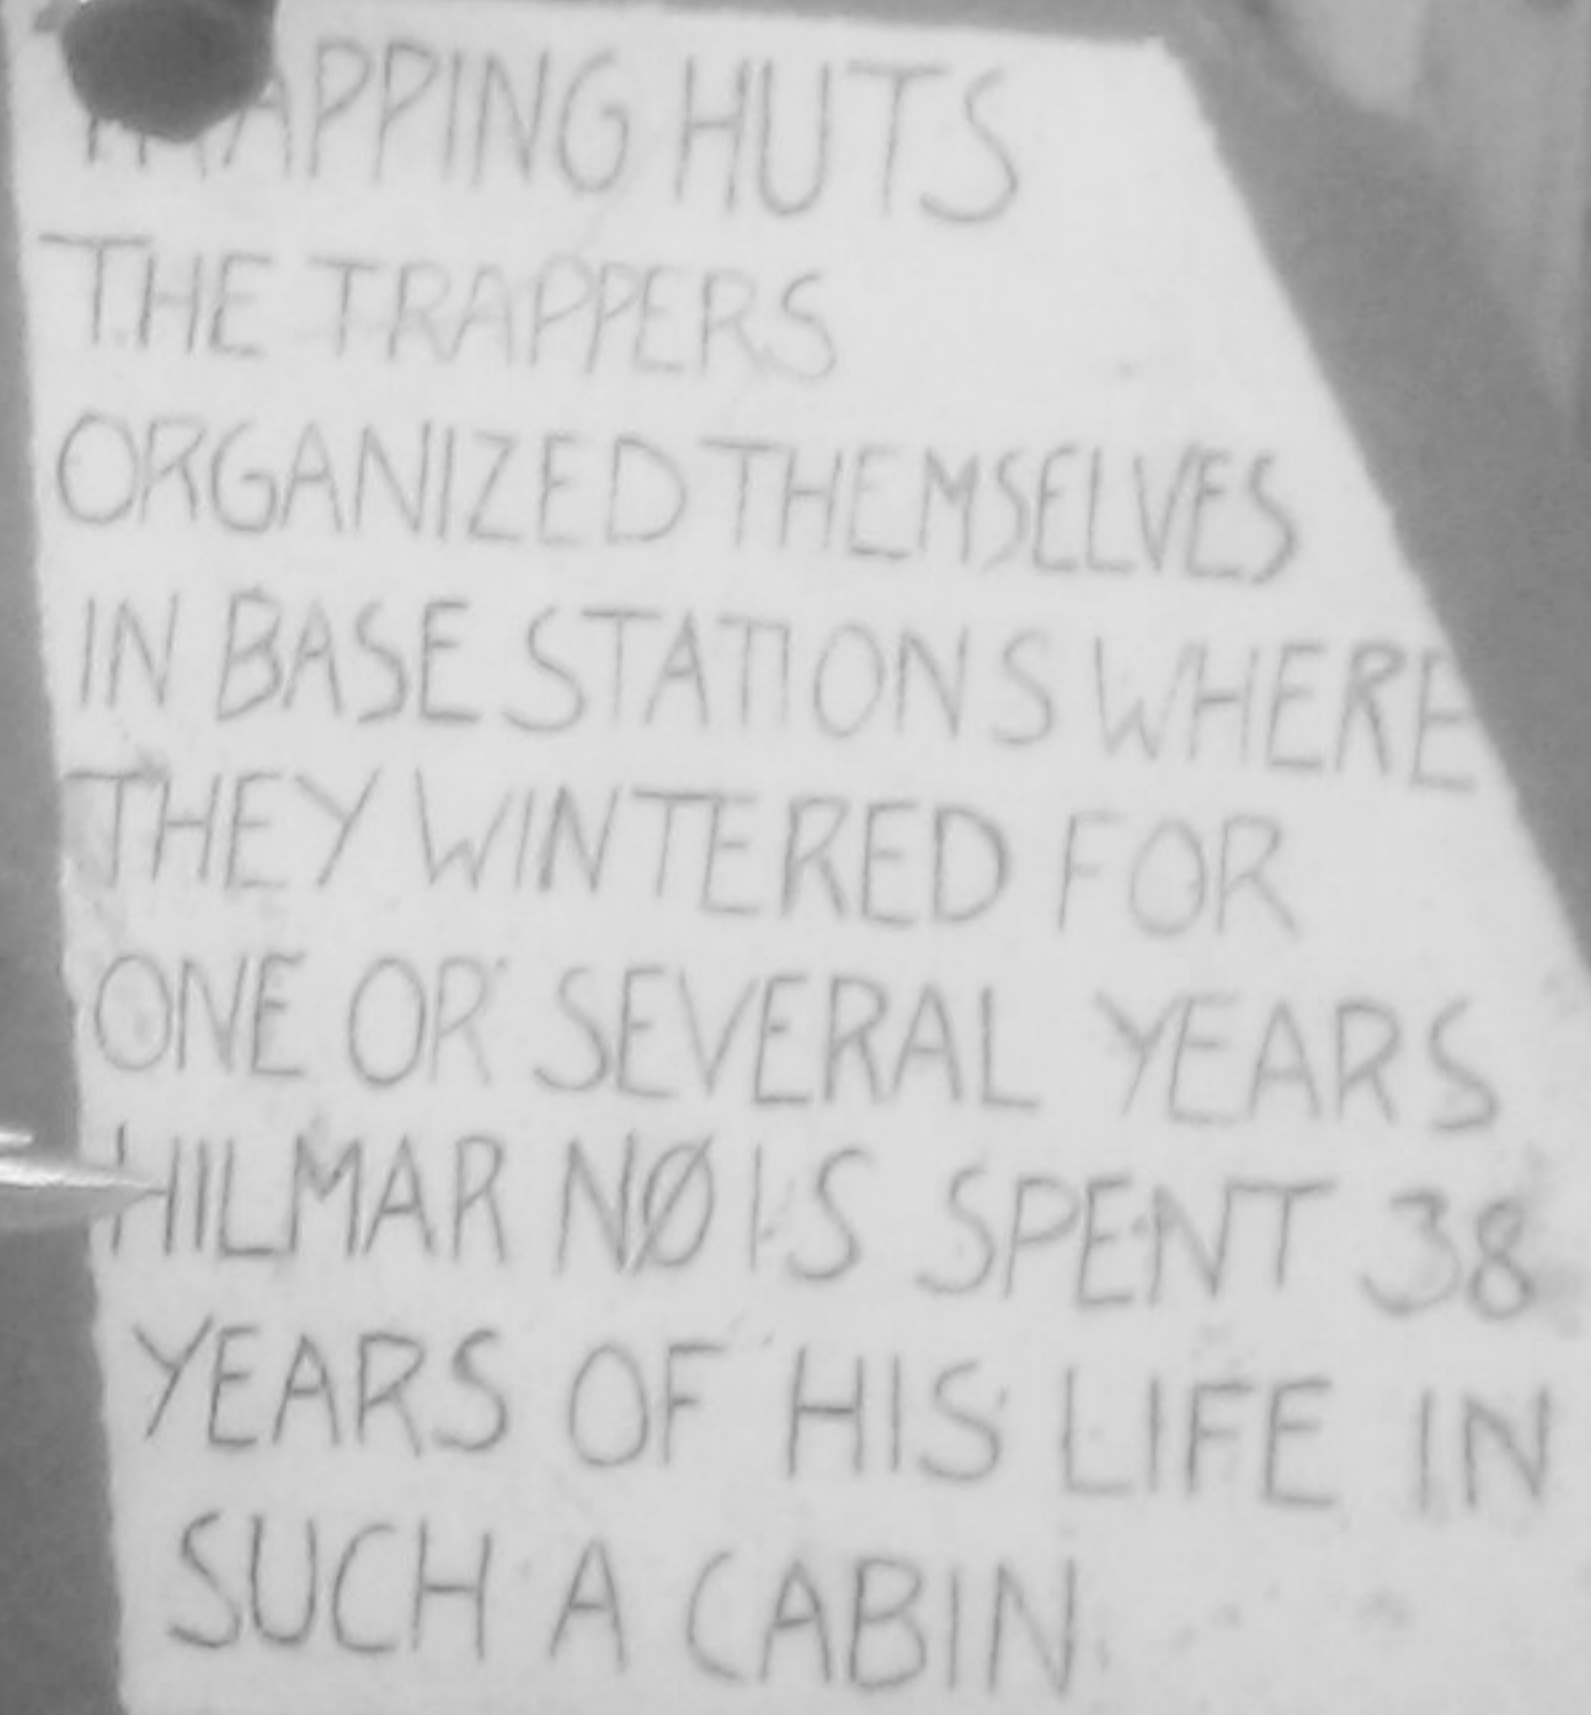 TRAPPING HUTS
THE TRAPPERS
ORGANIZED THEMSELVES
IN BASE STATIONS WHERE
THEY WINTERED FOR
ONE OR SEVERAL YEARS
HILMAR NØIS SPENT 38
YEARS OF HIS LIFE IN
SUCH A CABIN